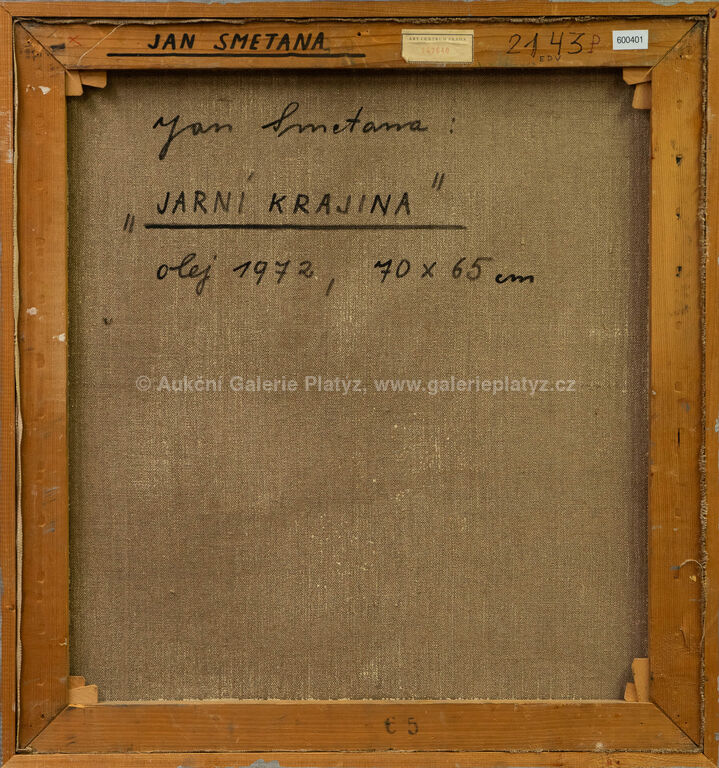 JAN SMETANA
ART CENTRUM PRAHA
2143P
600401
Jan Smetana:
„JARNÍ KRAJINA"
olej 1972, 70 x 65 cm
© Aukční Galerie Platýz, www.galerieplatyz.cz